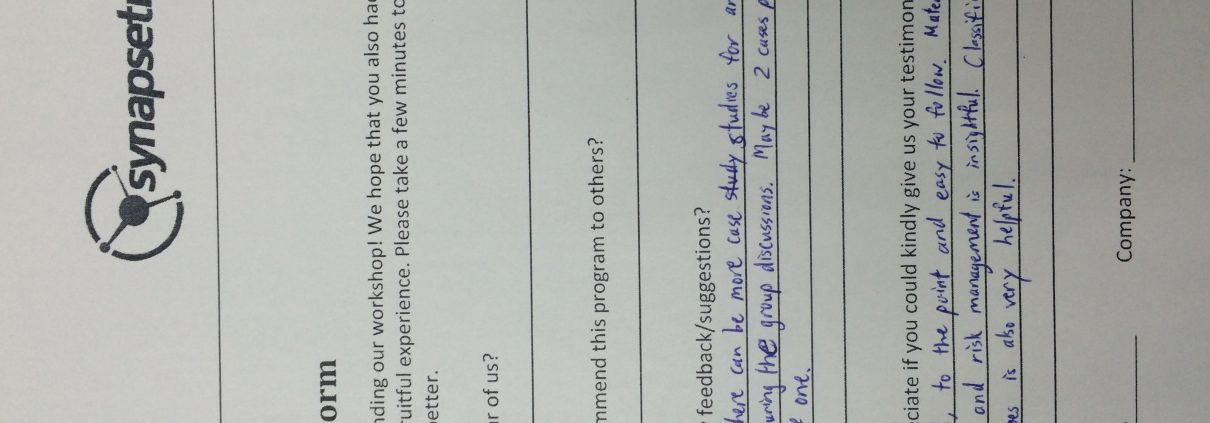 synapsetr
orm
nding our workshop! We hope that you also had
ruitful experience. Please take a few minutes to
etter.
r of us?
mmend this program to others?
feedback/suggestions?
here can be more case study studies for
uring the group discussions. Maybe 2 cases
one.
ciate if you could kindly give us your testimon
, to the point and easy to follow. Mate
and risk management is insightful. Classifi
es is also very helpful.
Company: